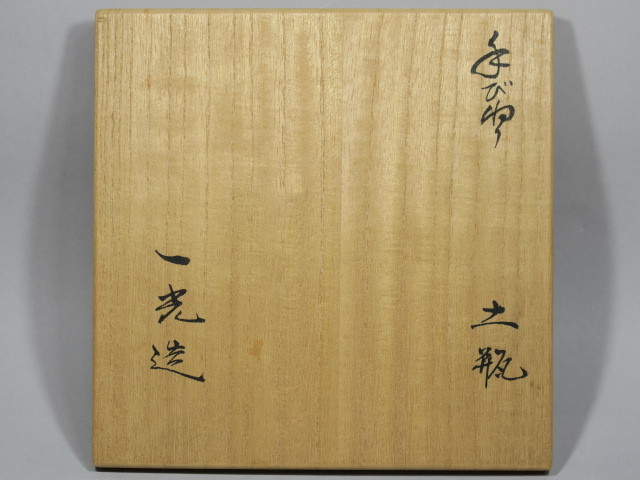 手びねり
土瓶
一光造